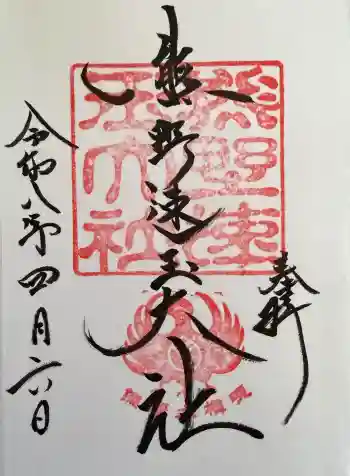 奉拝
熊野速玉大社
熊野速
玉大社
令和八年四月六日